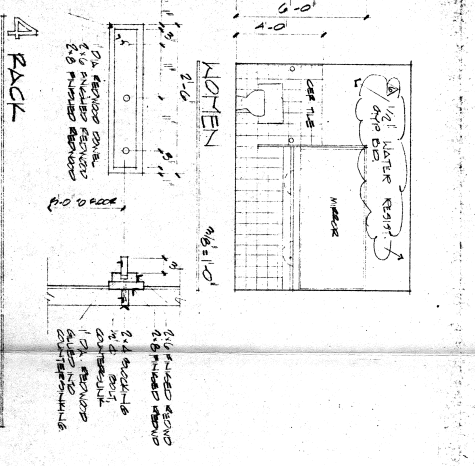 6'-0"
4'-0"
1/2" WATER RESIST.
GYP BD
CER TILE
MIRROR
WOMEN
3/8"=1'-0"
2'-6
3"
3"
1" DIA REDWOOD DOWEL
2x6 FINISHED REDWOOD
2x8 FINISHED REDWOOD
5'-0" TO FLOOR
3"
2x6 FINISHED REDWD
2x8 FINISHED REDWD
2x4 BLOCKING
1/2" Ø BOLT,
COUNTERSUNK
1" DIA. REDWOOD
GLUED INTO
COUNTERSINKING
4 RACK